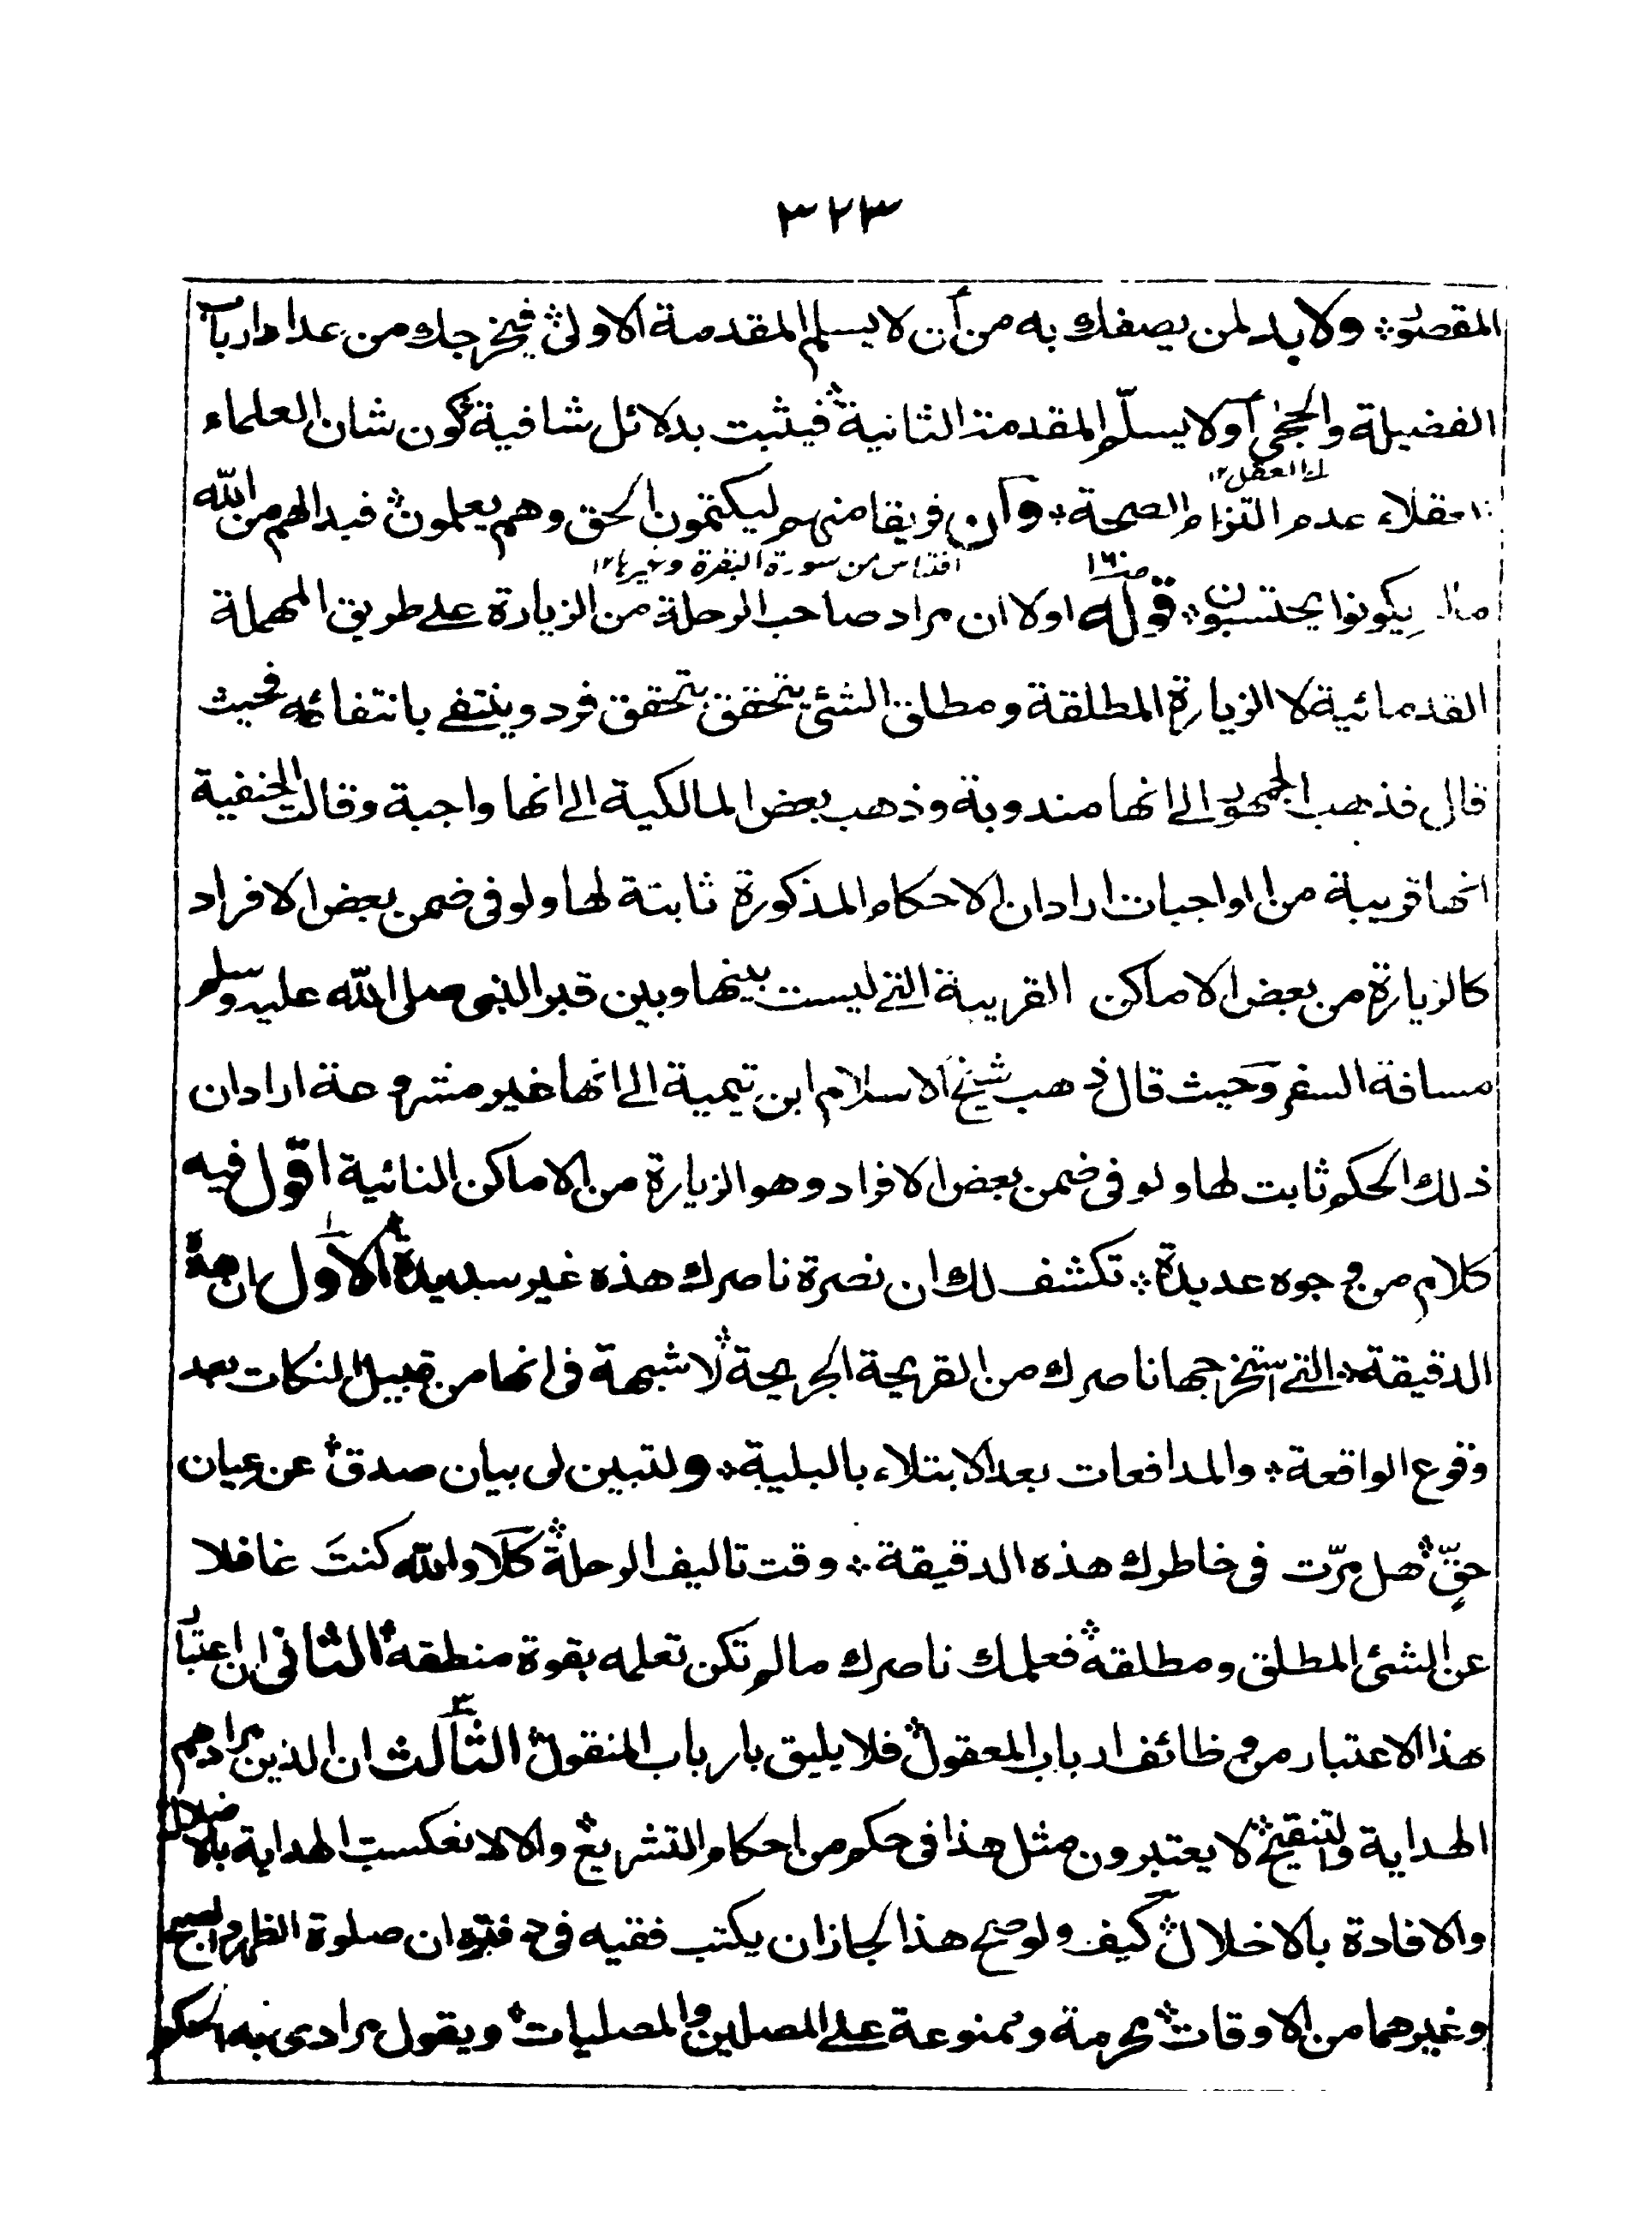 ٣٢٣
المقصود ولا بد لمن يصفك به من أن لا يسلم المقدمة الاولى فيخرجك من عداد ارباب
الفضيلة والحجى أو لا يسلّم المقدمة الثانية فيثبت بدلائل شافية كون شان العلماء
اى العقل ١٢
العقلاء عدم التزام الصحة وان فريقا منهم ليكتمون الحق وهم يعلمون فبدا لهم من الله
اقتباس من سورة البقرة وغيرها ١٢
مالم يكونوا يحتسبون قوله اولا ان مراد صاحب الرحلة من الزيارة على طريق المهملة
القدمائية لا الزيارة المطلقة ومطلق الشئ يتحقق بتحقق فرد وينتفى بانتفائه فحيث
قال فذهب الجمهور الى انها مندوبة وذهب بعض المالكية الى انها واجبة وقالت الحنفية
انها قريبة من الواجبات اراد ان الاحكام المذكورة ثابتة لها ولو فى ضمن بعض الافراد
كالزيارة من بعض الاماكن القريبة التى ليست بينها وبين قبر النبى صلى الله عليه وسلم
مسافة السفر وحيث قال ذهب شيخ الاسلام ابن تيمية الى انها غير مشروعة اراد ان
ذلك الحكم ثابت لها ولو فى ضمن بعض الافراد وهو الزيارة من الاماكن النائية اقول فيه
كلام من وجوه عديدة تكشف لك ان نصرة ناصرك هذه غير سديدة الاول ان هذه
الدقيقة التى استخرجها ناصرك من القريحة الجريحة لا شبهة فى انها من قبيل النكات بعد
وقوع الواقعة والمدافعات بعد الابتلاء بالبلية ولتبين لى بيان صدق عن عيان
حقٍّ هل مرّت فى خاطرك هذه الدقيقة وقت تاليف الرحلة كلا والله كنتَ غافلا
عن الشئ المطلق ومطلقه فعلمك ناصرك مالم تكن تعلمه بقوة منطقه الثانى ان اعتبار
هذا الاعتبار من وظائف ارباب المعقول فلا يليق بارباب المنقول الثالث ان الذين مرادهم
الهداية والتنقيح لا يعتبرون مثل هذا فى حكم من احكام التشريع والا لانعكست الهداية بالاضلال
والافادة بالاخلال كيف ولو صح هذا لجاز ان يكتب فقيه فى دفتره ان صلوة الظهر والصبح
وغيرهما من الاوقات محرمة وممنوعة على المصلين والمصليات ويقول مرادى به الحكم